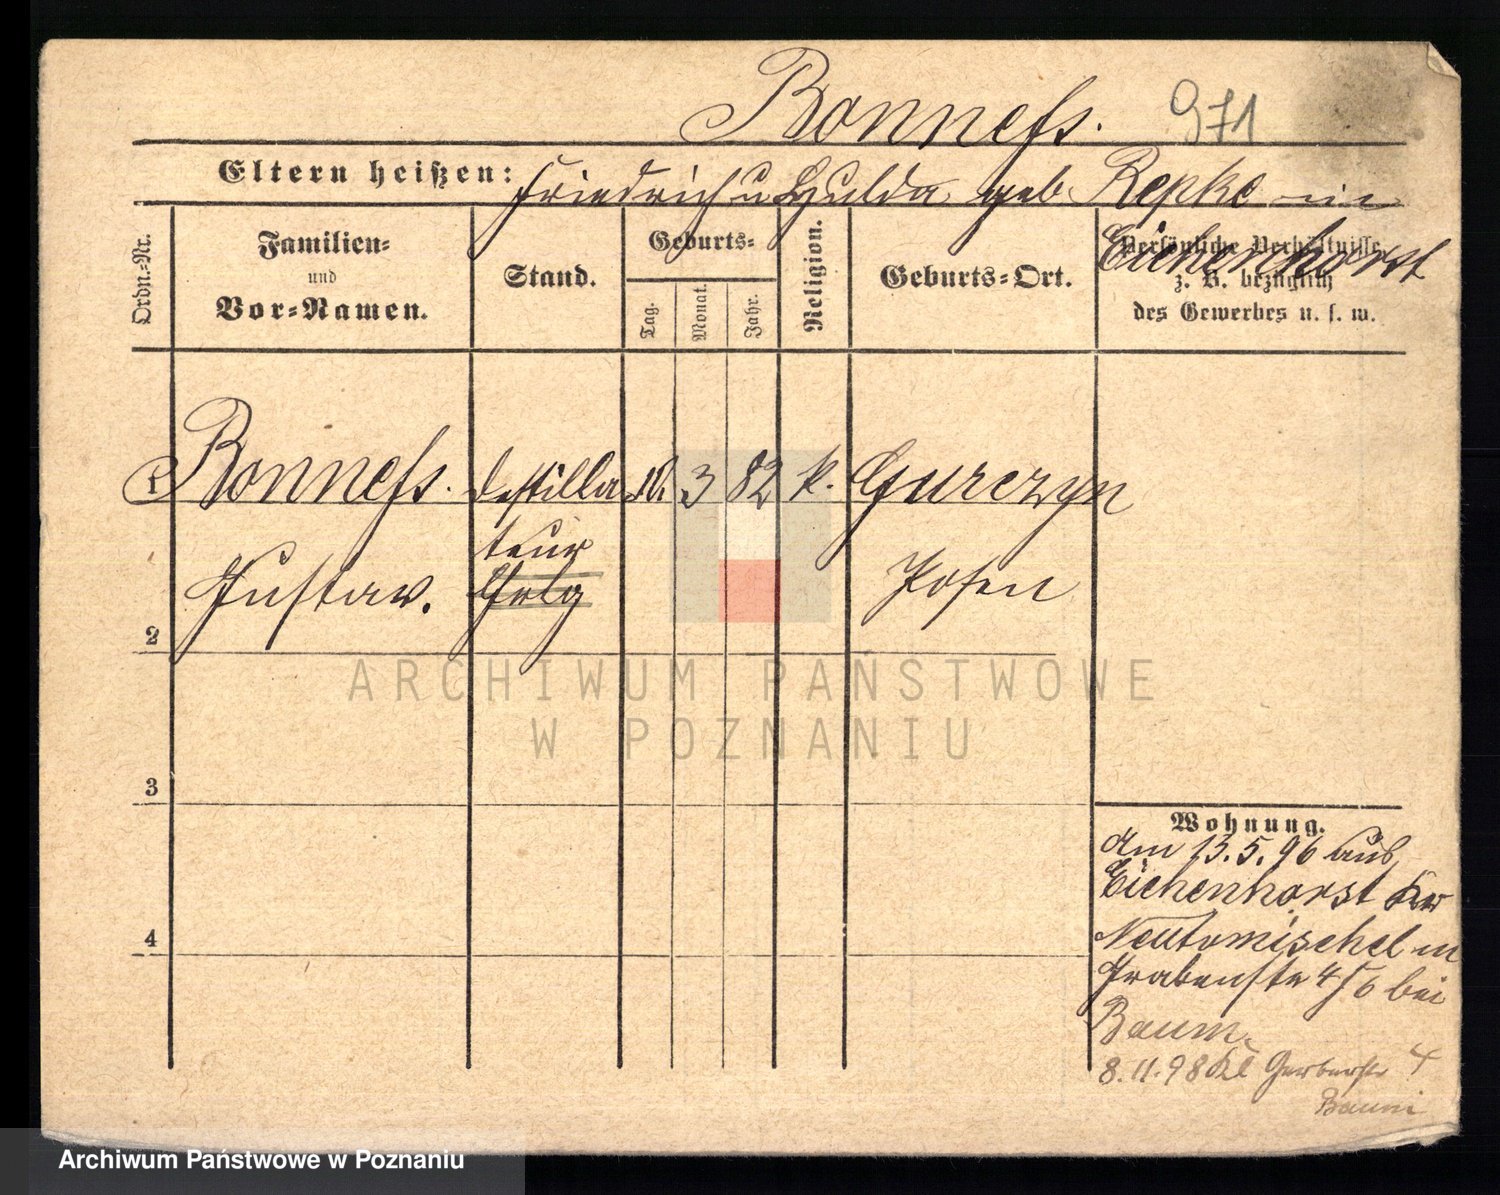 Bonness. 971
Eltern heißen: Friedrich u Hulda geb. Repke in
Eichenhorst
Ordn.-Nr.
Familien-
und
Vor-Namen.
Stand.
Geburts-
Tag.
Monat.
Jahr.
Religion.
Geburts-Ort.
Persönliche Verhältnisse
z. B. bezüglich
des Gewerbes u. s. w.
1 Bonness. Destilla 18. 3 82 k. Gurczyn
teur
Gustav. Posen
2
3
4
Wohnung.
Am 13.5.96 aus
Eichenhorst Kr
Neutomischel in
Grabenstr 4/6 bei
Baum.
8.11.98 Kl Gerberstr 4
Baum
ARCHIWUM PAŃSTWOWE
W POZNANIU
Archiwum Państwowe w Poznaniu